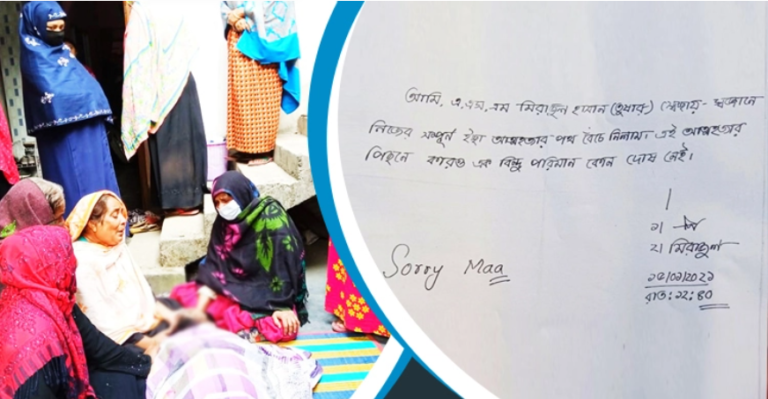 আমি, এ.এস.এম মিরাজুল হাসান (তুষার) স্বেচ্ছায়- স্বজ্ঞানে
নিজের সম্পূর্ন ইচ্ছা আত্মহত্যার পথ বেঁচে নিলাম। এই আত্মহত্যার
পিছনে কারও এক বিন্দু পরিমান কোন দোষ নেই।
১।
২। মিরাজুল
Sorry Maa
রাত: ১২:৪০